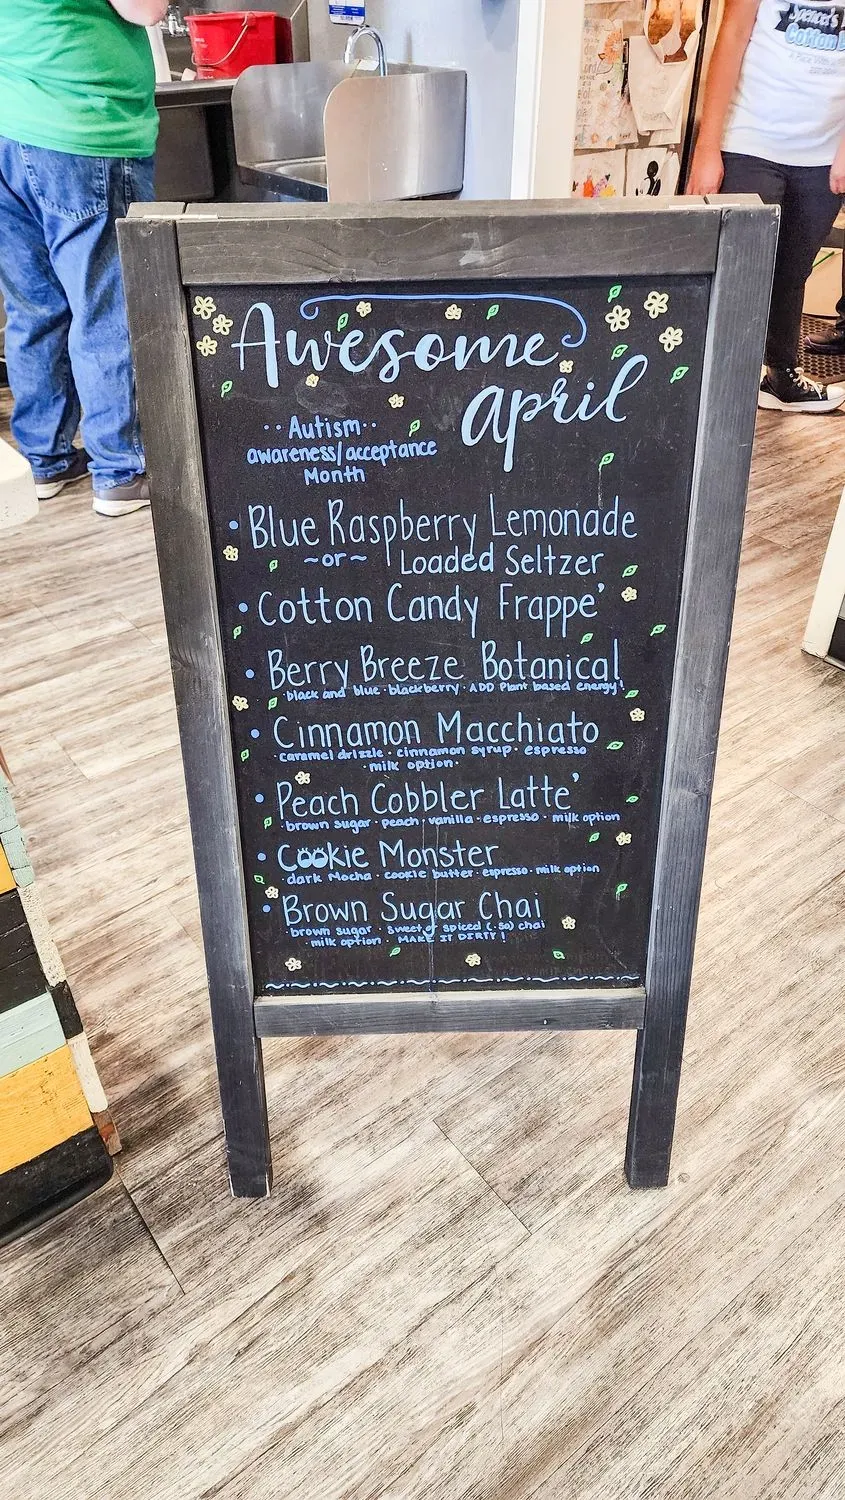 Spencer's
Cotton
Awesome
April
··Autism··
awareness/acceptance
Month
• Blue Raspberry Lemonade
~or~ Loaded Seltzer
• Cotton Candy Frappe'
• Berry Breeze Botanical
black and blue · blackberry · ADD Plant based energy!
• Cinnamon Macchiato
caramel drizzle · cinnamon syrup · espresso
· milk option ·
• Peach Cobbler Latte'
· brown sugar · peach · vanilla · espresso · milk option
• Cookie Monster
· dark Mocha · cookie butter · espresso · milk option
• Brown Sugar Chai
brown sugar · sweet or spiced (.50) chai
milk option · MAKE IT DIRTY!